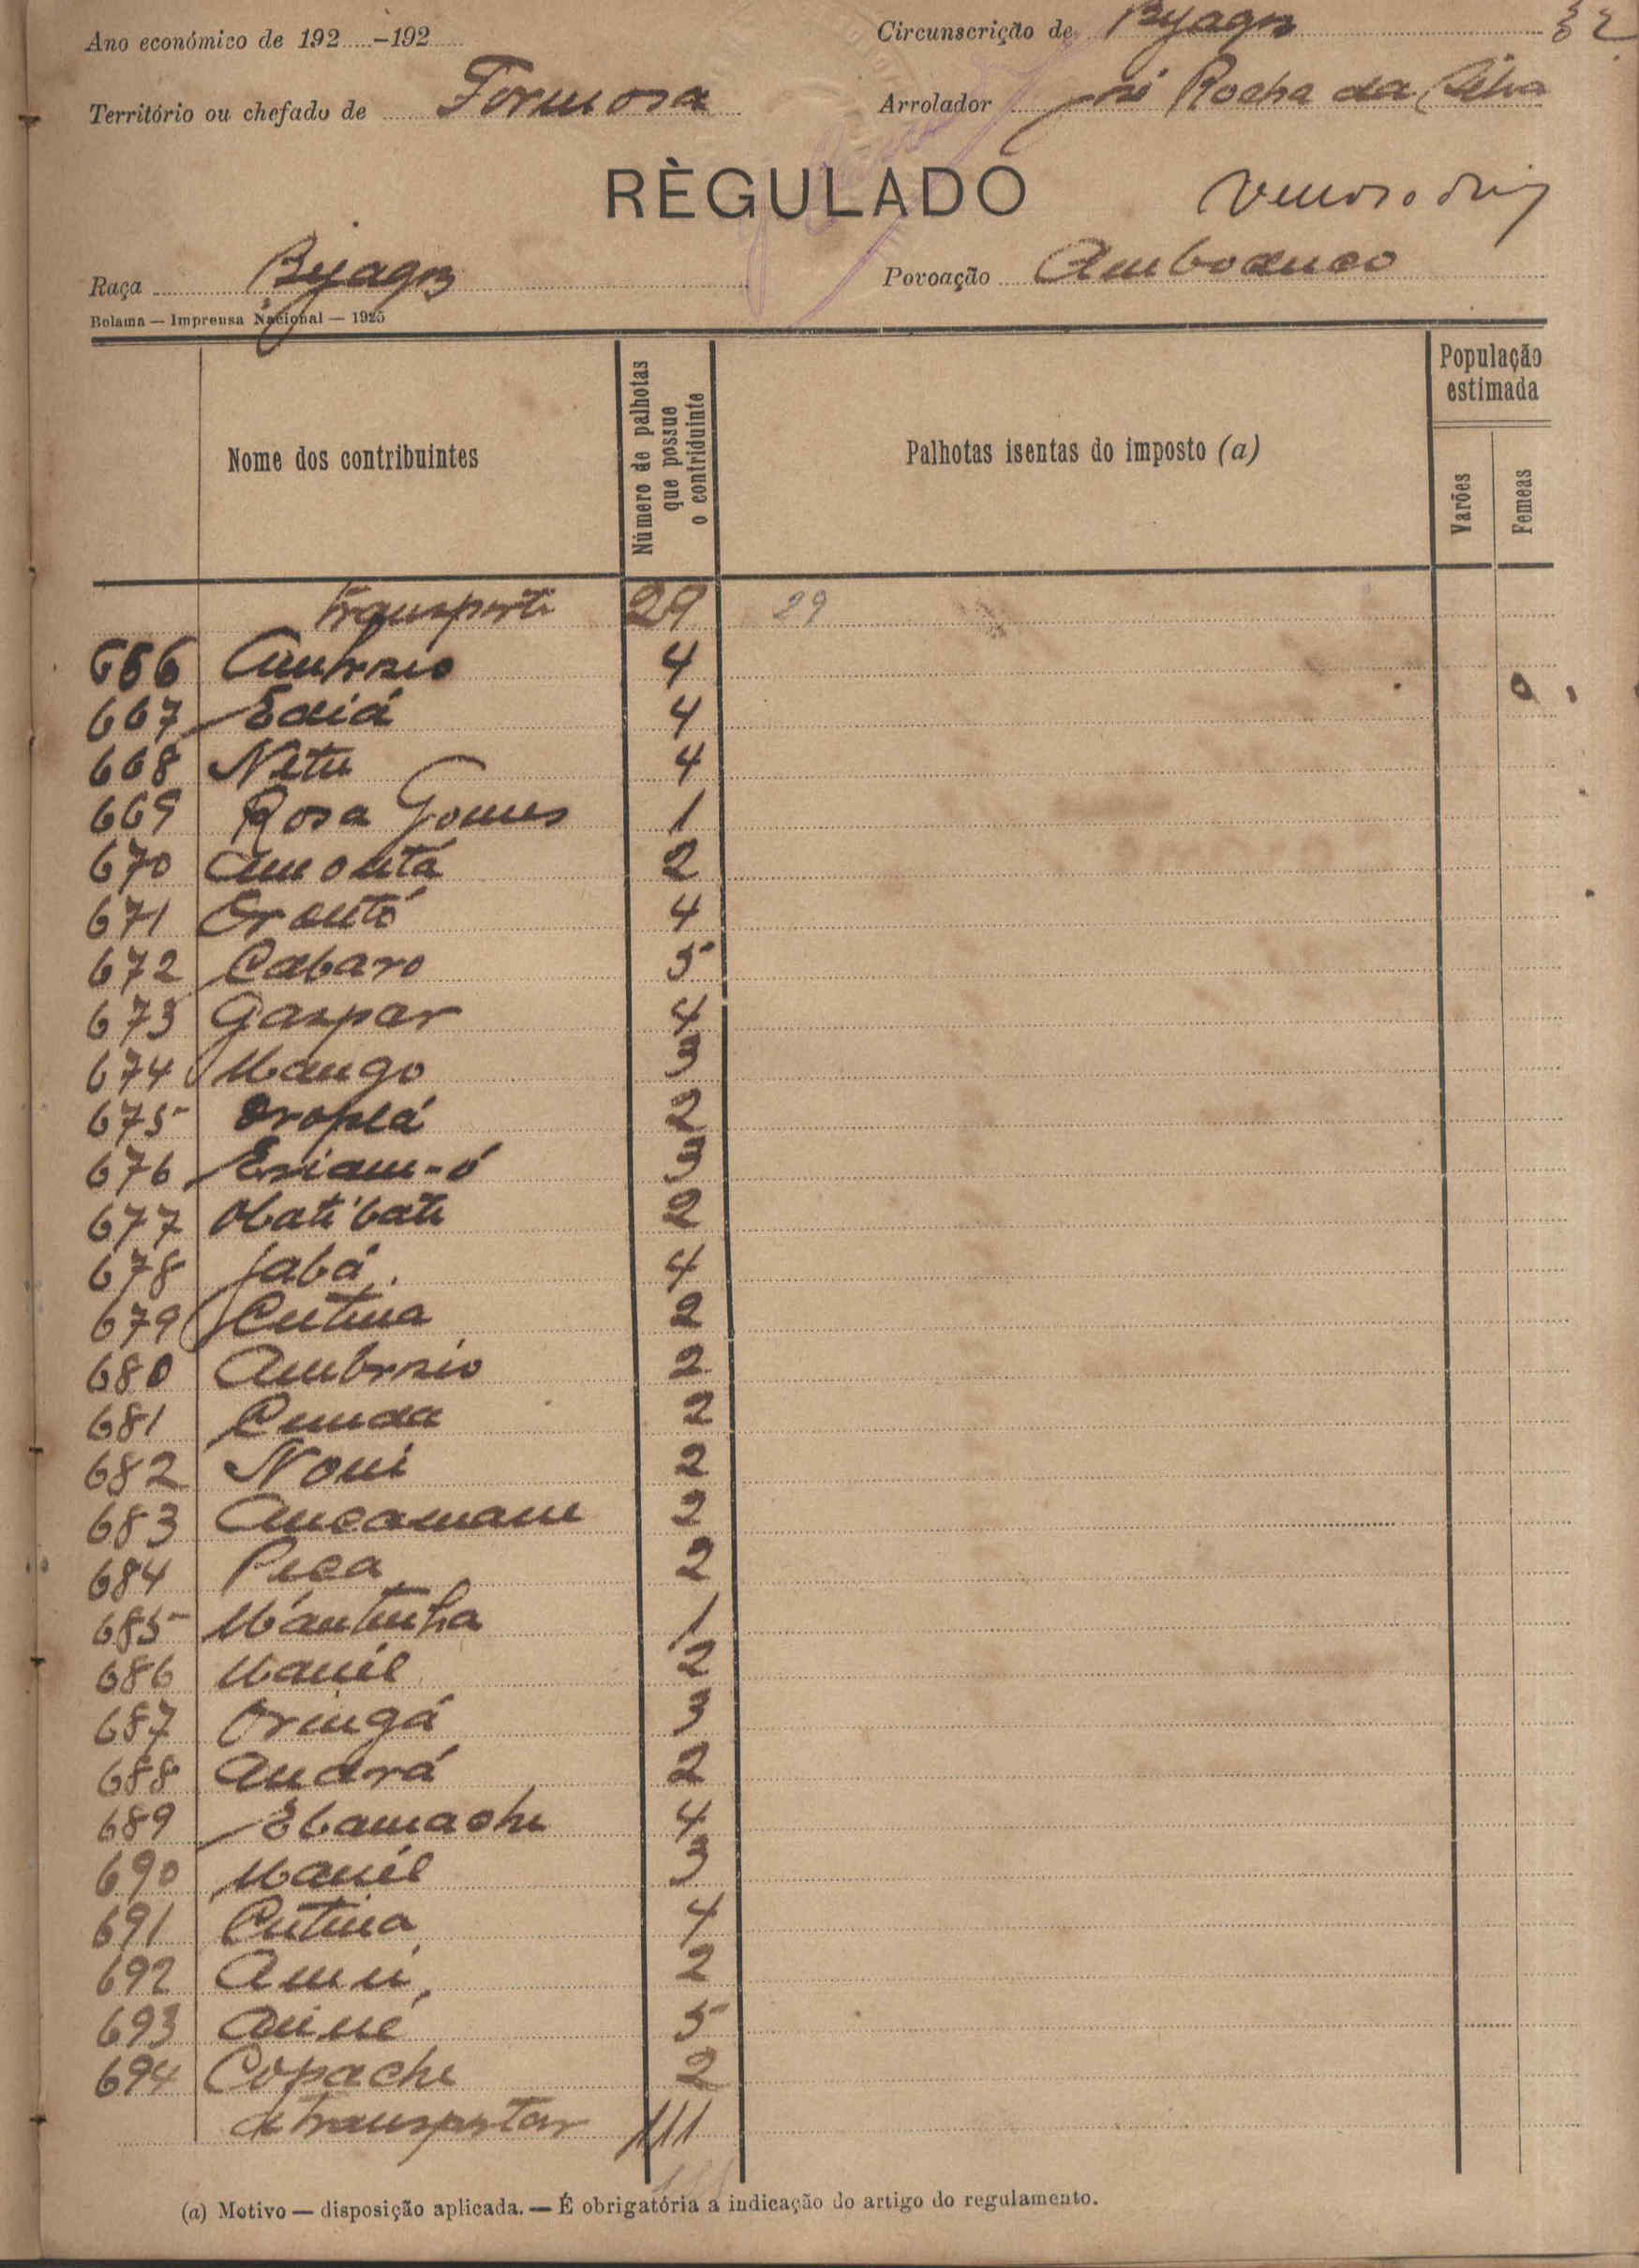 Ano económico de 192.....-192..... Circunscrição de Byagoz 32
Território ou chefado de Formosa Arrolador José Rocha da Silva
RÈGULADO
Raça Byagoz Povoação Amboduco
Bolama — Imprensa Nacional — 1925
Nome dos contribuintes Número de palhotas que possue o contriduinte Palhotas isentas do imposto (a) População estimada
Varões Femeas
Transporte 29 29
666 Ambrsio 4
667 Ediá 4
668 Netu 4
669 Rosa Gomes 1
670 Amontá 2
671 Orontó 4
672 Cabaro 5
673 Gaspar 4
674 Mango 3
675 Oroplá 2
676 Eniam-ó 3
677 Obatibati 2
678 Jabá 4
679 Cutina 2
680 Ambrsio 2
681 Cunda 2
682 Noni 2
683 Ancamam 2
684 Peca 2
685 Mantinha 1
686 Manil 2
687 Oringá 3
688 Andrá 2
689 Ebamache 4
690 Manél 3
691 Cutina 4
692 Amii 2
693 Ainié 5
694 Copache 2
A transportar 111
(a) Motivo — disposição aplicada. — É obrigatória a indicação do artigo do regulamento.